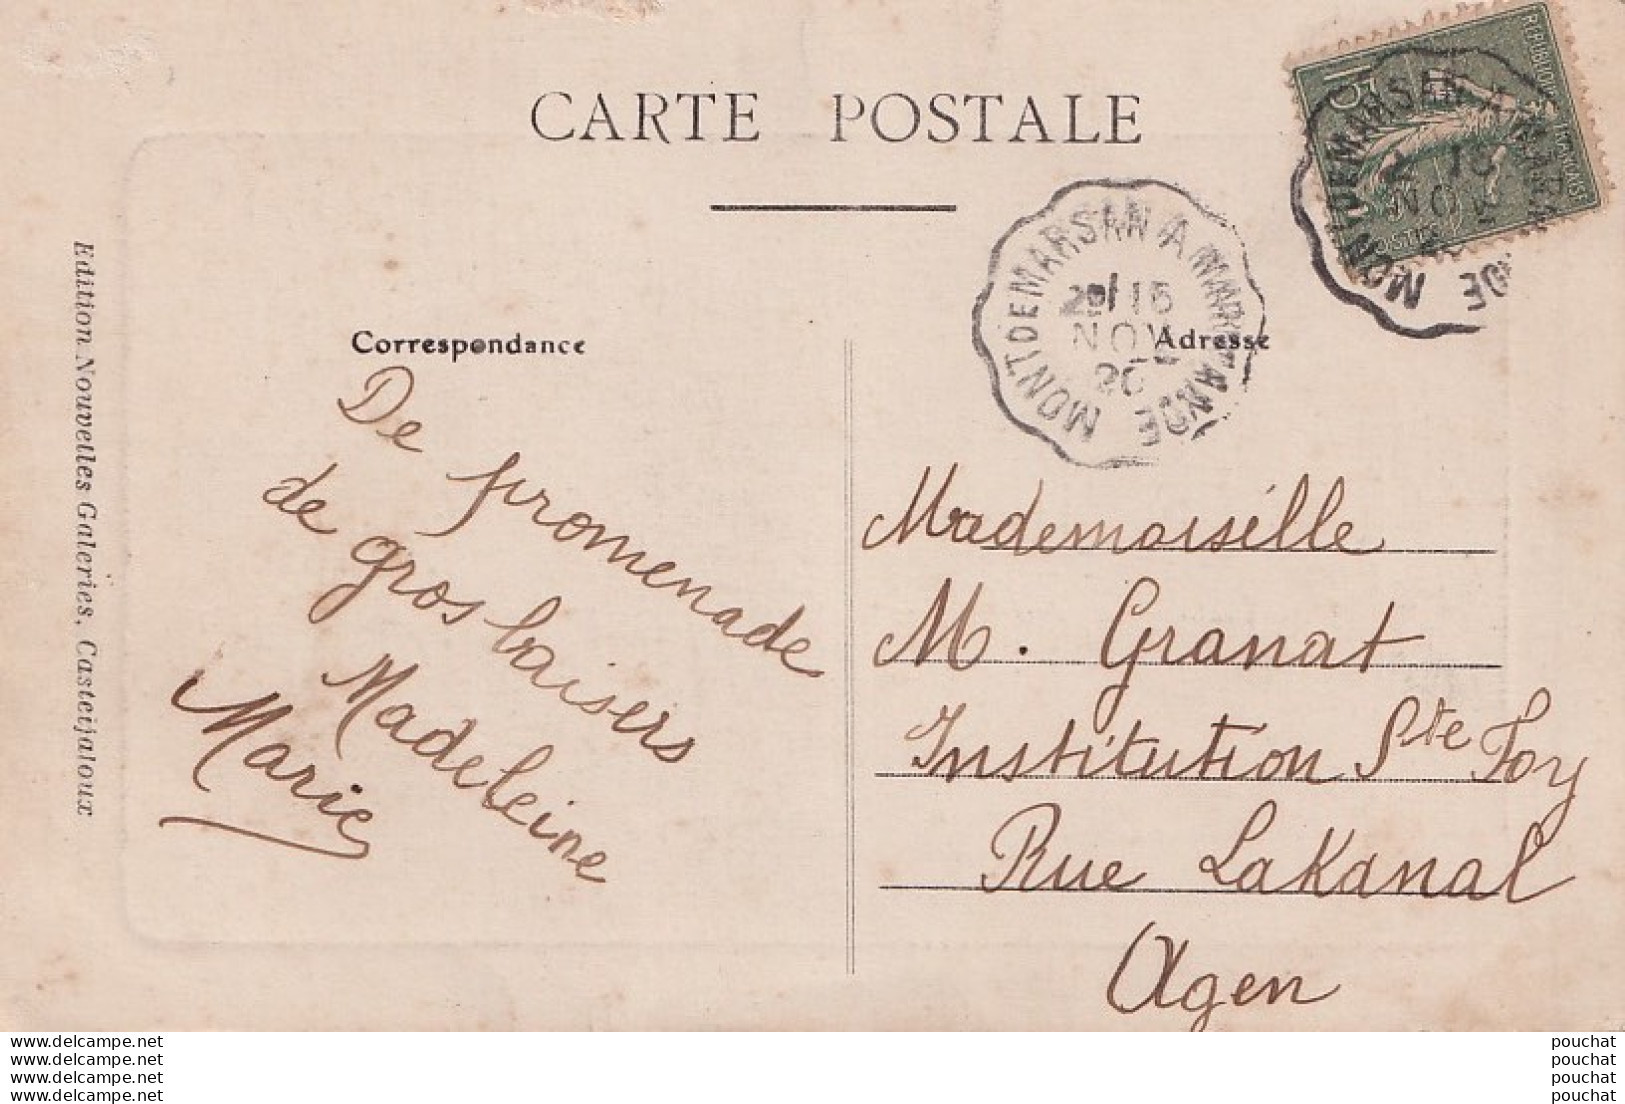 CARTE POSTALE
RÉPUBLIQUE FRANÇAISE
15
POSTES
MONT DE MARSAN A MARMANDE
15
NOV
MONT DE MARSAN A MARMANDE
15
NOV
20
Edition Nouvelles Galeries, Casteljaloux
Correspondance
De promenade
de gros baisers
Madeleine
Marie
Adresse
Mademoiselle
M. Granat
Institution Ste Foy
Rue LaKanal
Agen
www.delcampe.net
www.delcampe.net
www.delcampe.net
www.delcampe.net
pouchat
pouchat
pouchat
pouchat